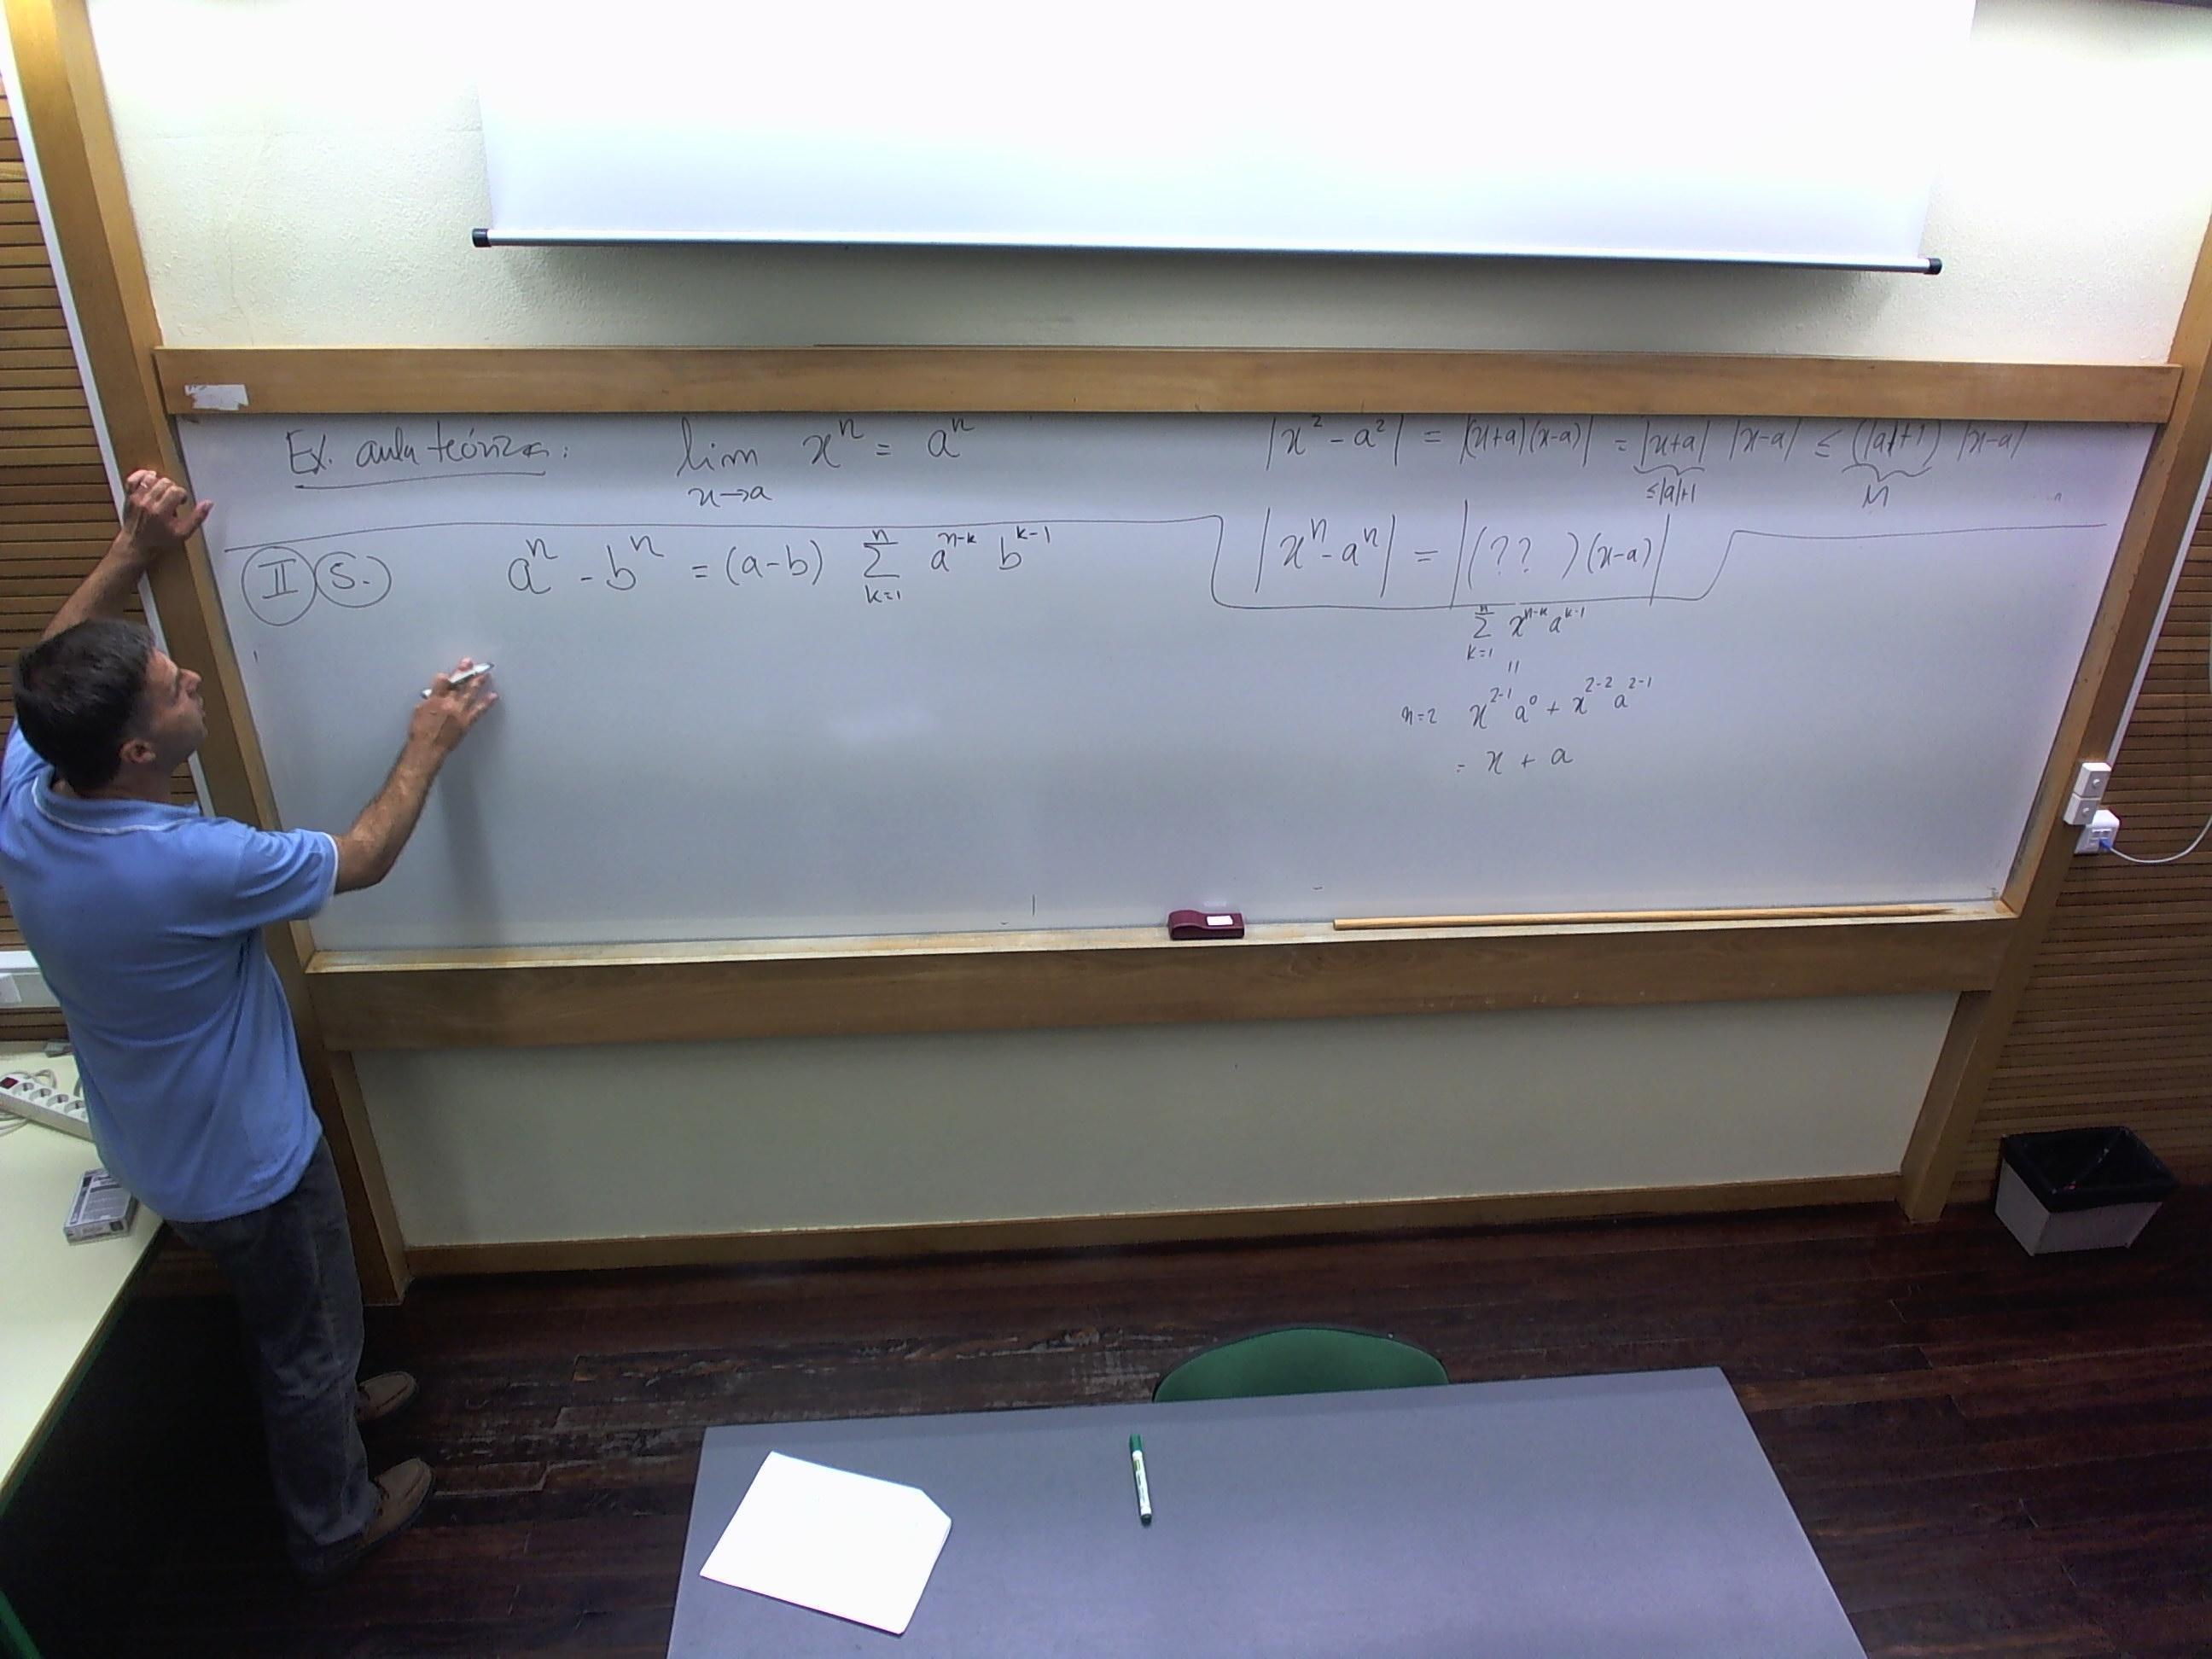 Ex. aula teórica: lim x→a xⁿ = aⁿ
|x² - a²| = |(x+a)(x-a)| = |x+a| |x-a| ≤ (|a|+1) |x-a|
≤|a|+1 M
|xⁿ - aⁿ| = |(?? )(x-a)|
II 5. aⁿ - bⁿ = (a-b) Σ k=1 n a^{n-k} b^{k-1}
Σ k=1 n x^{n-k} a^{k-1}
=
n=2 x^{2-1} a⁰ + x^{2-2} a^{2-1}
= x + a